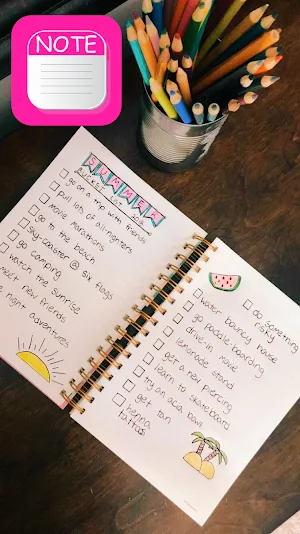 NOTE
SUMMER
BUCKET LIST
go on a trip with friends
pull lots of all-nighters
movie marathons
go to the beach
sky-coaster @ six flags
go camping
watch the sunrise
new friends
night adventures
water bouncy house
go paddle-boarding
drive-in movie
lemonade stand
get a new piercing
learn to skateboard
try an acai bowl
get tan
henna
tattoo
do something
risky